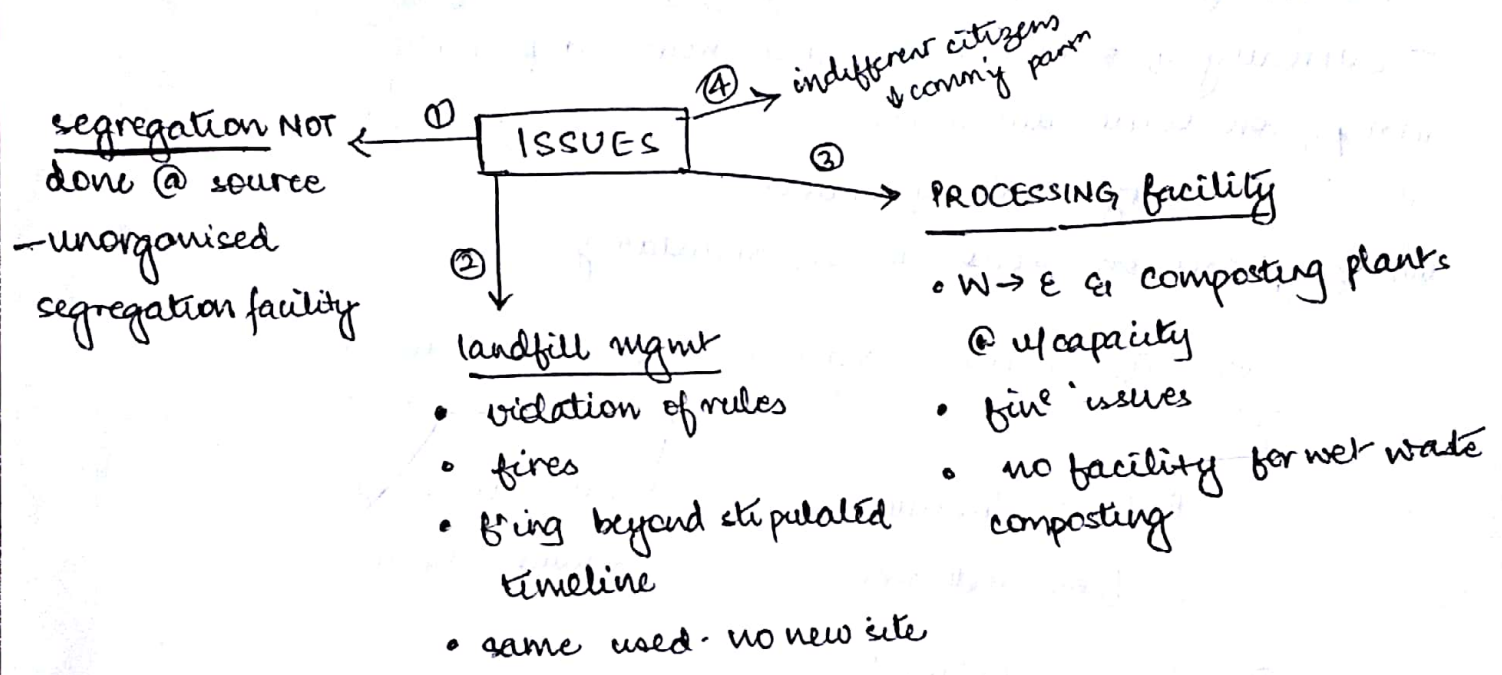 ISSUES
①
segregation NOT
done @ source
- unorganised
segregation facility
②
landfill mgmt
• violation of rules
• fires
• f'ing beyond stipulated
timeline
• same used. no new site
③
PROCESSING facility
• W→ E & composting plants
@ u/capacity
• issues
• no facility for wet waste
composting
④
indifferent citizens
↓ comm'y